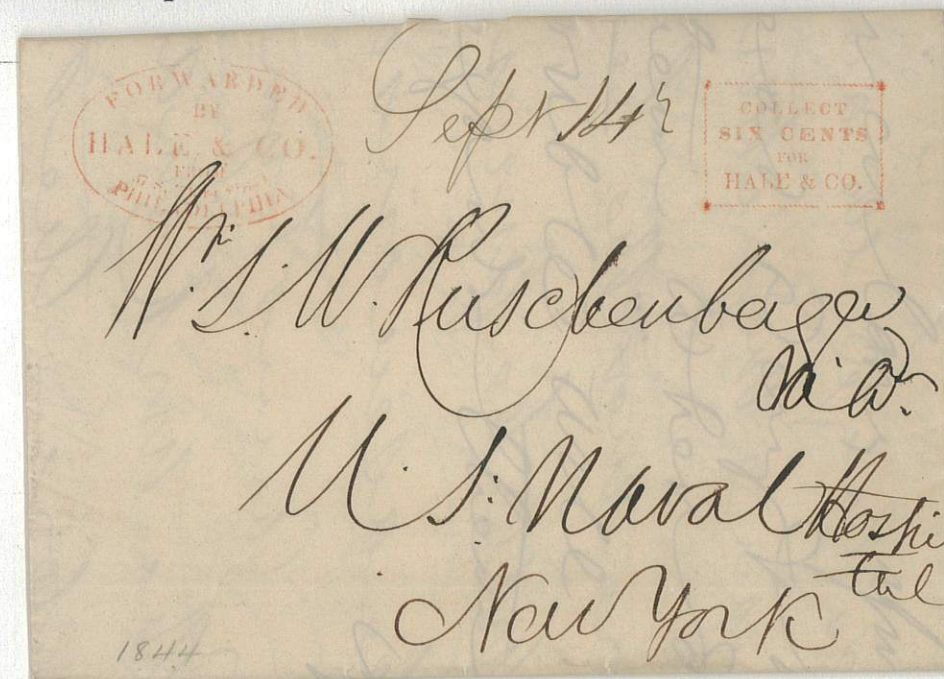 FORWARDED
BY
HALE & CO.
FROM
PHILADELPHIA
Sept 14
COLLECT
SIX CENTS
FOR
HALE & CO.
Wm. S. W. Ruschenberger
M.D.
U. S. Naval Hospi
tal
New York
1844